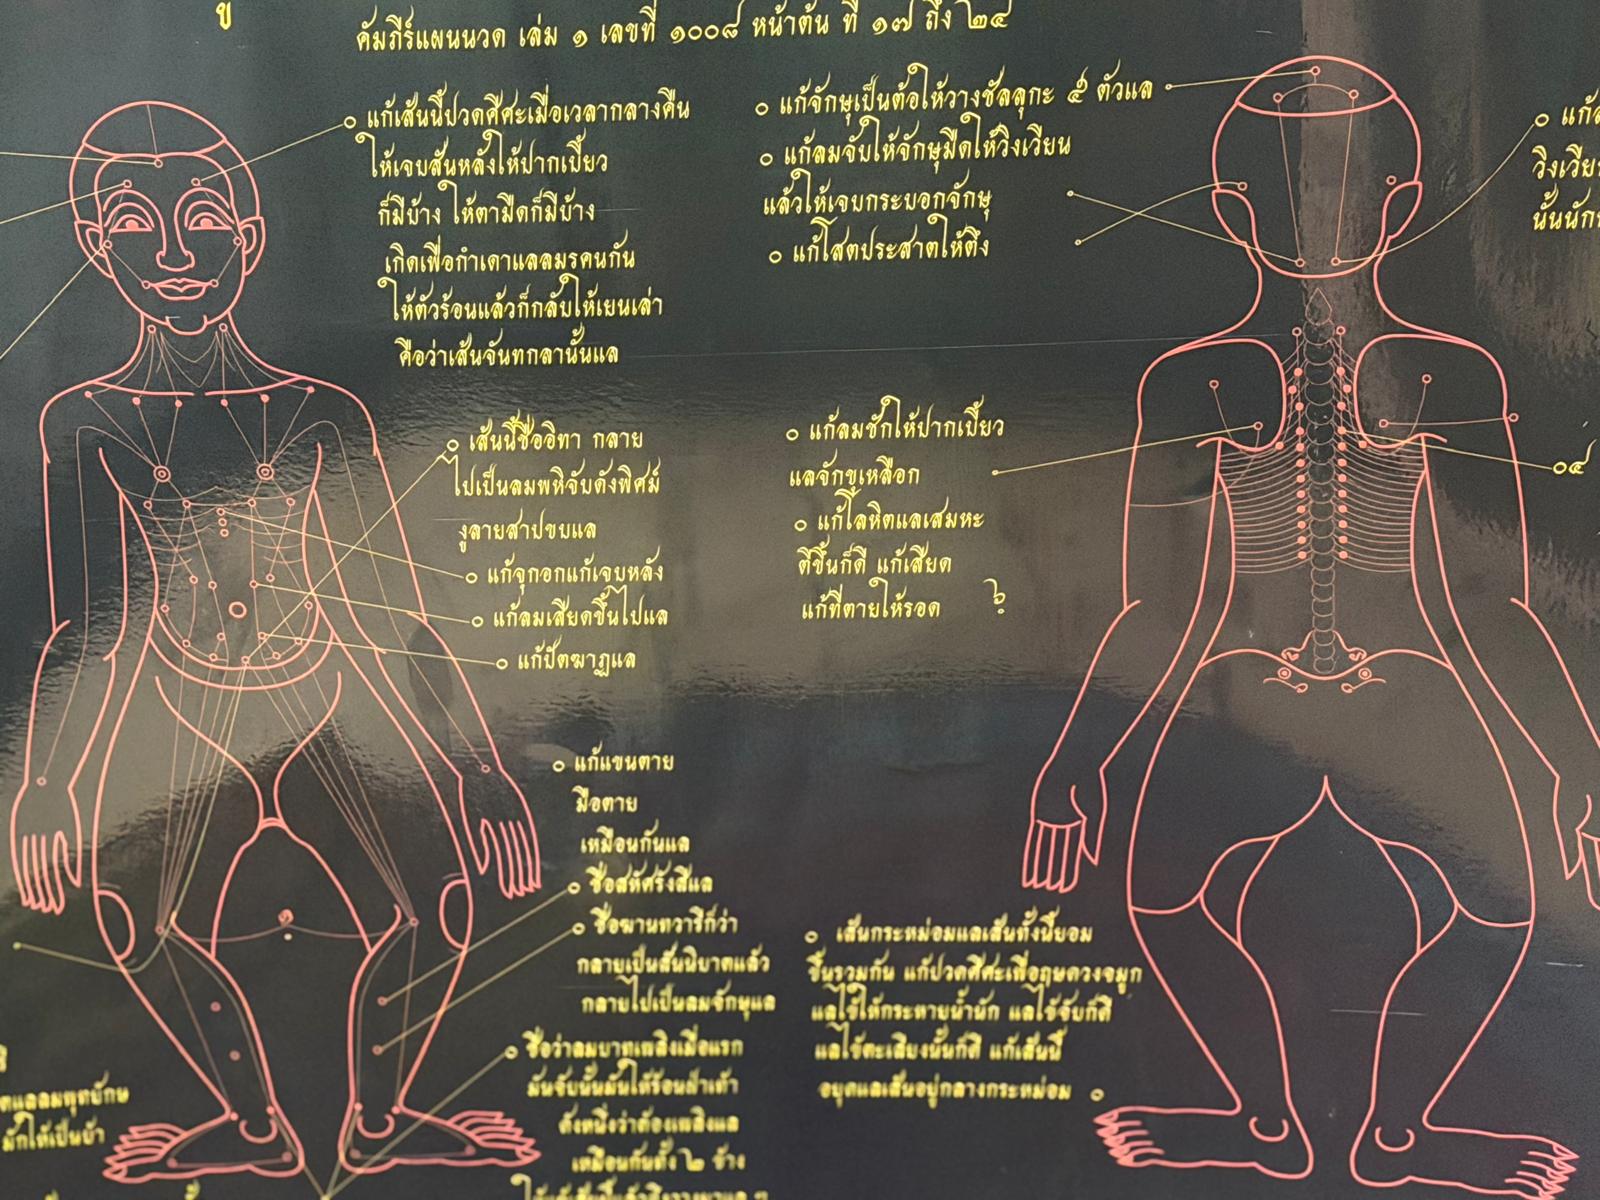 คัมภีร์แผนนวด เล่ม ๑ เลขที่ ๑๐๐๘ หน้าต้น ที่ ๑๗ ถึง ๒๔
แก้เส้นนี้ปวดศีศะเมื่อเวลากลางคืน
ให้เจบสันหลังให้ปากเบี้ยว
ก็มีบ้าง ให้ตามืดก็มีบ้าง
เกิดเพื่อกำเดาแลลมรคนกัน
ให้ตัวร้อนแล้วก็กลับให้เยนเล่า
คือว่าเส้นจันทกลานั้นแล
แก้จักษุเป็นต้อให้วางชัลลุกะ ๕ ตัวแล
แก้ลมจับให้จักษุมืดให้วิงเวียน
แล้วให้เจบกระบอกจักษุ
แก้โสตประสาตให้ตึง
วิงเวีย
เส้นนี้ชื่ออิทา กลาย
ไปเป็นลมพหิจับดังพิศม์
งูลายสาปขบแล
แก้จุกอกแก้เจบหลัง
แก้ลมเสียดขึ้นไปแล
แก้ปัตฆาฏแล
แก้ลมชักให้ปากเบี้ยว
แลจักขุเหลือก
แก้โลหิตแลเสมหะ
ตีขึ้นก็ดี แก้เสียด
แก้ที่ตายให้รอด
๐๔
แก้แขนตาย
มือตาย
เหมือนกันแล
ชื่อสหัศรังสีแล
ชื่อฆานทวารีก็ว่า
กลายเป็นสันนิบาตแล้ว
กลายไปเป็นลมจักษุแล
ชื่อว่าลมบาทเพลิงเมื่อแรก
มันจับนั้นมันให้ร้อนฝ่าเท้า
ดังหนึ่งว่าต้องเพลิงแล
เหมือนกันทั้ง ๒ ข้าง
เส้นกระหม่อมแลเส้นทั้งนี้ยอม
ขึ้นรวมกัน แก้ปวดศีศะเพื่อฤษดวงจมูก
แลไข้ให้กระหายน้ำนัก แลไข้จับก็ดี
แลไข้ตะเสียงนั้นก็ดี แก้เส้นนี้
อยุดแลเส้นอยู่กลางกระหม่อม
ตแลลมพุทยักษ
มักให้เป็นบ้า